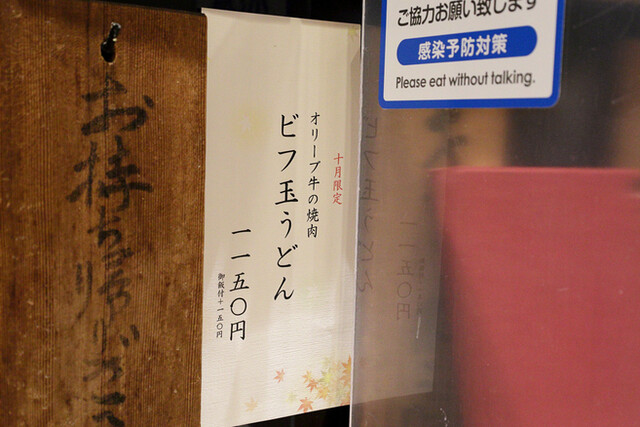 お持ち帰りが
十月限定
オリーブ牛の焼肉
ビフ玉うどん
一一五〇円
御飯付+一五〇円
ご協力お願い致します
感染予防対策
Please eat without talking.